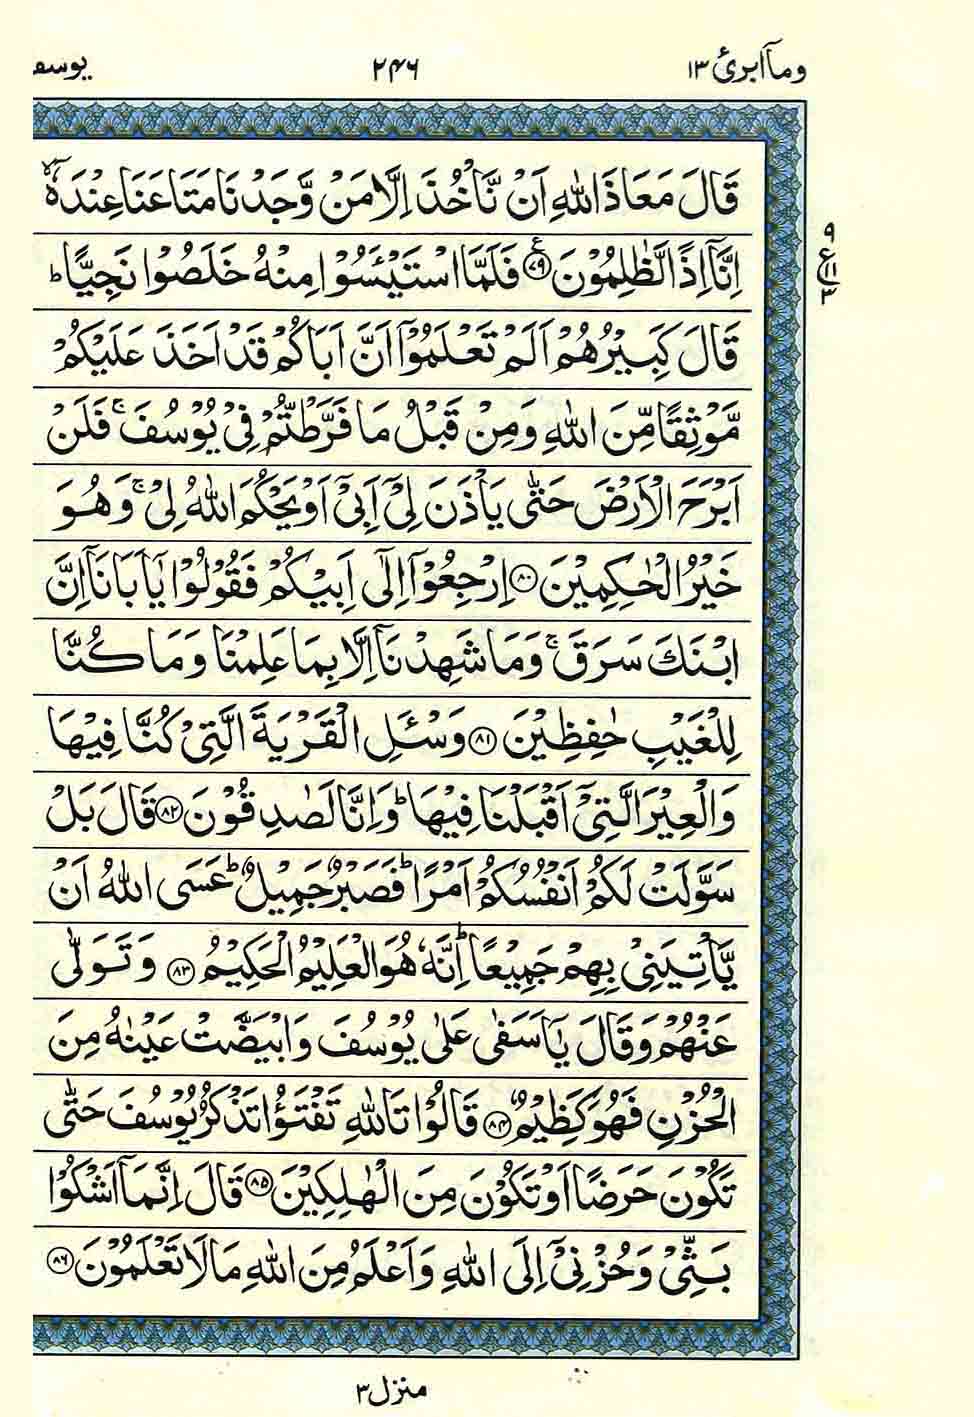 وماآابرئ ١٣
٢٤٦
يوسف
قَالَ مَعَاذَ اللّٰهِ اَنْ نَّاْخُذَ اِلَّا مَنْ وَّجَدْنَا مَتَاعَنَا عِنْدَهٗۤ ۙ
اِنَّاۤ اِذًا لَّظٰلِمُوْنَ ﴿٧٩﴾ ع فَلَمَّا اسْتَيْـَٔسُوْا مِنْهُ خَلَصُوْا نَجِيًّا ؕ
٩
ع ١١
٣
قَالَ كَبِيْرُهُمْ اَلَمْ تَعْلَمُوْۤا اَنَّ اَبَاكُمْ قَدْ اَخَذَ عَلَيْكُمْ
مَّوْثِقًا مِّنَ اللّٰهِ وَمِنْ قَبْلُ مَا فَرَّطْتُّمْ فِيْ يُوْسُفَ ۚ فَلَنْ
اَبْرَحَ الْاَرْضَ حَتّٰى يَاْذَنَ لِيْۤ اَبِيْۤ اَوْ يَحْكُمَ اللّٰهُ لِيْ ۚ وَهُوَ
خَيْرُ الْحٰكِمِيْنَ ﴿٨٠﴾ اِرْجِعُوْۤا اِلٰۤى اَبِيْكُمْ فَقُوْلُوْا يٰۤاَبَانَاۤ اِنَّ
ابْنَكَ سَرَقَ ۚ وَمَا شَهِدْنَاۤ اِلَّا بِمَا عَلِمْنَا وَمَا كُنَّا
لِلْغَيْبِ حٰفِظِيْنَ ﴿٨١﴾ وَسْـَٔلِ الْقَرْيَةَ الَّتِيْ كُنَّا فِيْهَا
وَالْعِيْرَ الَّتِيْۤ اَقْبَلْنَا فِيْهَا ؕ وَاِنَّا لَصٰدِقُوْنَ ﴿٨٢﴾ قَالَ بَلْ
سَوَّلَتْ لَكُمْ اَنْفُسُكُمْ اَمْرًا ؕ فَصَبْرٌ جَمِيْلٌ ؕ عَسَى اللّٰهُ اَنْ
يَّاْتِيَنِيْ بِهِمْ جَمِيْعًا ؕ اِنَّهٗ هُوَ الْعَلِيْمُ الْحَكِيْمُ ﴿٨٣﴾ وَتَوَلّٰى
عَنْهُمْ وَقَالَ يٰۤاَسَفٰى عَلٰى يُوْسُفَ وَابْيَضَّتْ عَيْنٰهُ مِنَ
الْحُزْنِ فَهُوَ كَظِيْمٌ ﴿٨٤﴾ قَالُوْا تَاللّٰهِ تَفْتَؤُا تَذْكُرُ يُوْسُفَ حَتّٰى
تَكُوْنَ حَرَضًا اَوْ تَكُوْنَ مِنَ الْهٰلِكِيْنَ ﴿٨٥﴾ قَالَ اِنَّمَاۤ اَشْكُوْا
بَثِّيْ وَحُزْنِيْۤ اِلَى اللّٰهِ وَاَعْلَمُ مِنَ اللّٰهِ مَا لَا تَعْلَمُوْنَ ﴿٨٦﴾
منزل ٣